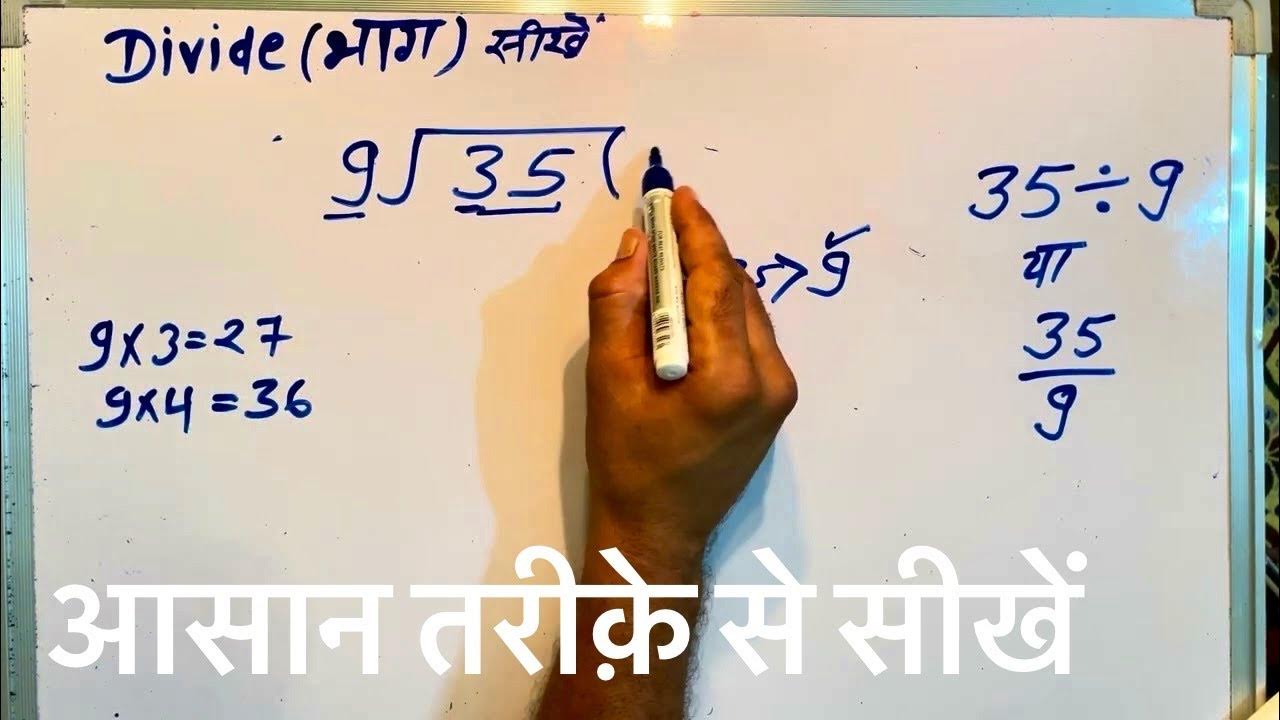 Divide (भाग) सीखें
9√35(
35÷9
या
35
9
5>9
9x3=27
9x4=36
आसान तरीक़े से सीखें